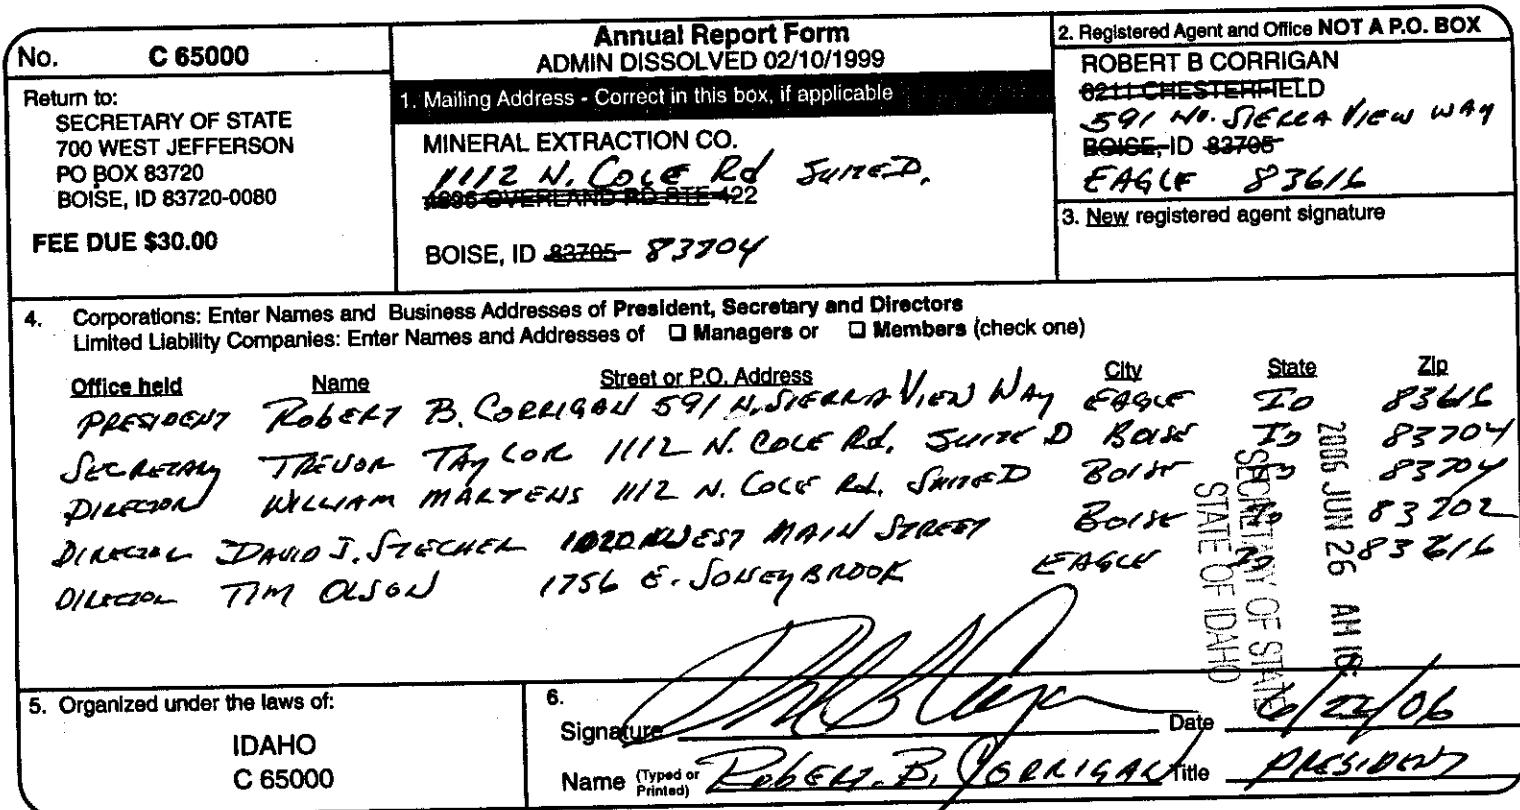 No. C 65000
Return to:
SECRETARY OF STATE
700 WEST JEFFERSON
PO BOX 83720
BOISE, ID 83720-0080
FEE DUE $30.00
Annual Report Form
ADMIN DISSOLVED 02/10/1999
1. Mailing Address - Correct in this box, if applicable
MINERAL EXTRACTION CO.
1112 N. COLE Rd SUITE D.
4696 OVERLAND RD STE 422
BOISE, ID 83705- 83704
2. Registered Agent and Office NOT A P.O. BOX
ROBERT B CORRIGAN
6211 CHESTERFIELD
591 NO. SIERRA VIEW WAY
BOISE, ID 83705
EAGLE 83616
3. New registered agent signature
4. Corporations: Enter Names and Business Addresses of President, Secretary and Directors
Limited Liability Companies: Enter Names and Addresses of ☐ Managers or ☐ Members (check one)
Office held Name Street or P.O. Address City State Zip
PRESIDENT ROBERT B. CORRIGAN 591 N. SIERRA VIEW WAY EAGLE ID 83616
SECRETARY TREVOR TAYLOR 1112 N. COLE Rd. SUITE D BOISE ID 83704
DIRECTOR WILLIAM MARTENS 1112 N. COLE Rd. SUITE D BOISE ID 83704
DIRECTOR DAVID J. STECHER WEST MAIN STREET BOISE ID 83702
DIRECTOR TIM OLSON 1756 E. BOISE ID 83616
2006 JUN 26 AM
SECRETARY OF STATE
STATE OF IDAHO
5. Organized under the laws of:
IDAHO
C 65000
6.
Signature Date 6/22/06
Name (Typed or Printed) ROBERT. B. CORRIGAN Title PRESIDENT